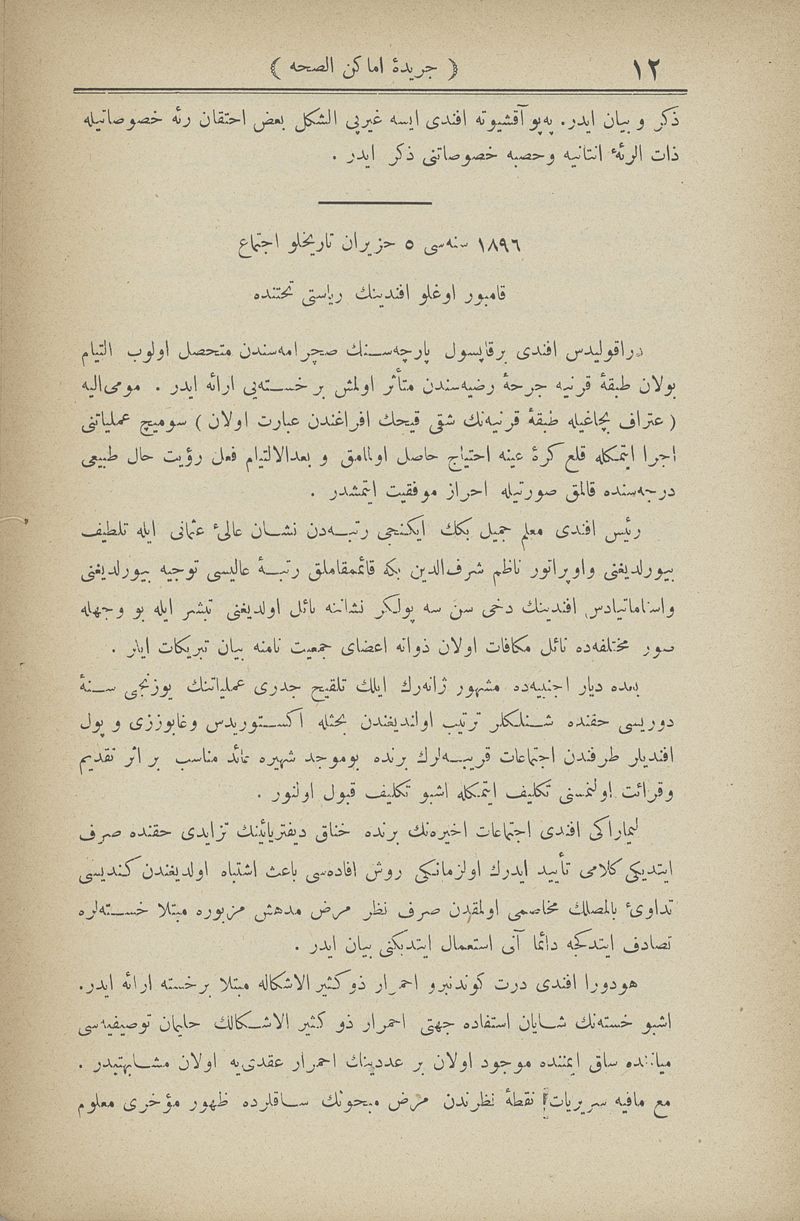 ١٢
﴿ جريدۀ اماكن الصحه ﴾
ذكر و بيان ايدر. پهپو آقشيوته افندى ايسه غيرپى الشكل بعض احتقان رئه خصوصاتيله
ذات الرئهٔ انتانيه وحصبه خصوصاتنى ذكر ايدر .
١٨٩٦ سنه‌سى ٥ حزيران تاريخلو اجتماع
قامبور اوغلو افندينك رياستى تحتنده
دراقوليدس افندى برقاپسول پارچه‌سنك صچرامه‌سندن متحصل اولوب التيام
بولان طبقۀ قرنيه جرحۀ رضيه‌سندن متأثر اولمش بر خسته‌يى ارائه ايدر . مومى‌اليه
( غراف بچاغيله طبقۀ قرنيه‌نك شقى قيحك افراغندن عبارت اولان ) سوميچ عملياتنى
اجرا ايتمكله قلع كرۀ عينه احتياج حاصل اولمامق و بعدالالتيام فعل رؤيت حال طبيعى
درجه‌سنده قالمق صورتيله احراز موفقيت ايتمشدر .
رئيس افندى معلم جميل بكك ايكنجى رتبه‌دن نشان عالئ عثمانى ايله تلطيف
بيورلديغنى واوپراتور ناظم شرف‌الدين بكه قائممقاملق رتبۀ عاليسى توجيه بيورلديغنى
واستاماتيادس افندينك دخى سن سه پولكر نشاننه نائل اولديغنى تبشير ايله بو وجهله
صور مختلفه‌ده نائل مكافات اولان ذواته اعضاى جمعيت نامنه بيان تبريكات ايلر .
بعده ديار اجنبيه‌ده مشهور ژانه‌رك ايلك تلقيح جدرى عملياتنك يوزنجى سنۀ
دوريسى حقنده شنلكلر ترتيب اولنديغندن بحثله اكستوريدس وغابوززى و پول
افنديلر طرفندن اجتماعات قريبه‌لرك برنده بوموجد شهيره عائد مناسب بر اثر تقديم
وقرائت اولنمسنى تكليف ايتمكله اشبو تكليف قبول اولنور .
ليماراكى افندى اجتماعات اخيره‌نك برنده خناق ديفتريائينك تزايدى حقنده صرف
ايتديكى كلامى تأييد ايدرك اولزمانكى روش افاده‌سى باعث اشتباه اولديغندن كنديسى
تداوئ بالمصلك مخاصمى اولمقدن صرف نظر مرض مدهش مزبوره مبتلا خسته‌لره
تصادف ايتدكجه دائما آنى استعمال ايتديكنى بيان ايدر .
هودورا افندى درت كوندنبرو احمرار ذو كثير الاشكاله مبتلا برخسته ارائه ايدر.
اشبو خسته‌نك شايان استفاده جهتى احمرار ذو كثير الاشكالك حليمان توصيفيه‌سى
مياننده ساق ايمننده موجود اولان بر عددينك احمرار عقدى‌يه اولان مشابهتيدر .
مع مافيه سريريات نقطۀ نظرندن مرض مبحوثك ساقلرده ظهور مؤخرى معلوم